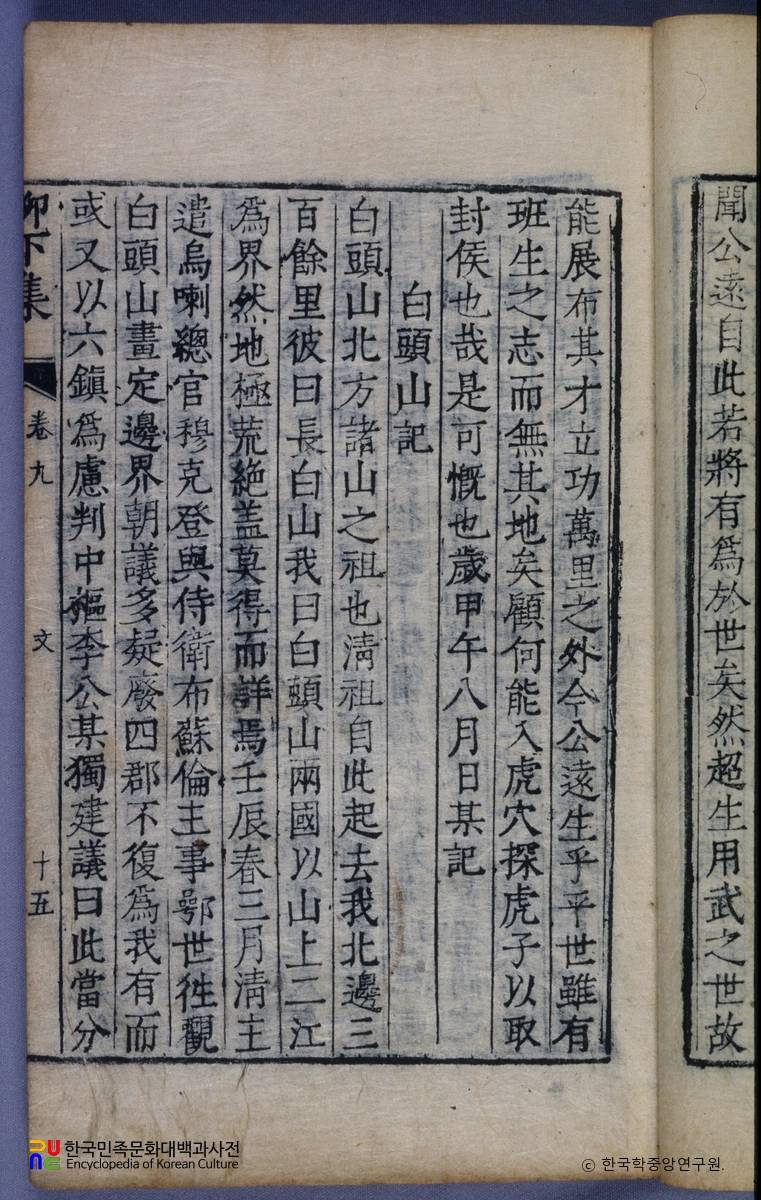 聞公遠自此若將有爲於世矣然超生用武之世故
能展布其才立功萬里之外今公遠生乎平世雖有
班生之志而無其地矣顧何能入虎穴探虎子以取
封侯也哉是可慨也歲甲午八月日某記
白頭山記
白頭山北方諸山之祖也淸祖自此起去我北邊三
百餘里彼曰長白山我曰白頭山兩國以山上二江
爲界然地極荒絶盖莫得而詳焉壬辰春三月淸主
遣烏喇總官穆克登與侍衛布蘇倫主事鄂世徃觀
白頭山畫定邊界朝議多疑廢四郡不復爲我有而
或又以六鎭爲慮判中樞李公某獨建議曰此當分
柳下集
卷九
文
十五
한국민족문화대백과사전
Encyclopedia of Korean Culture
ⓒ 한국학중앙연구원.